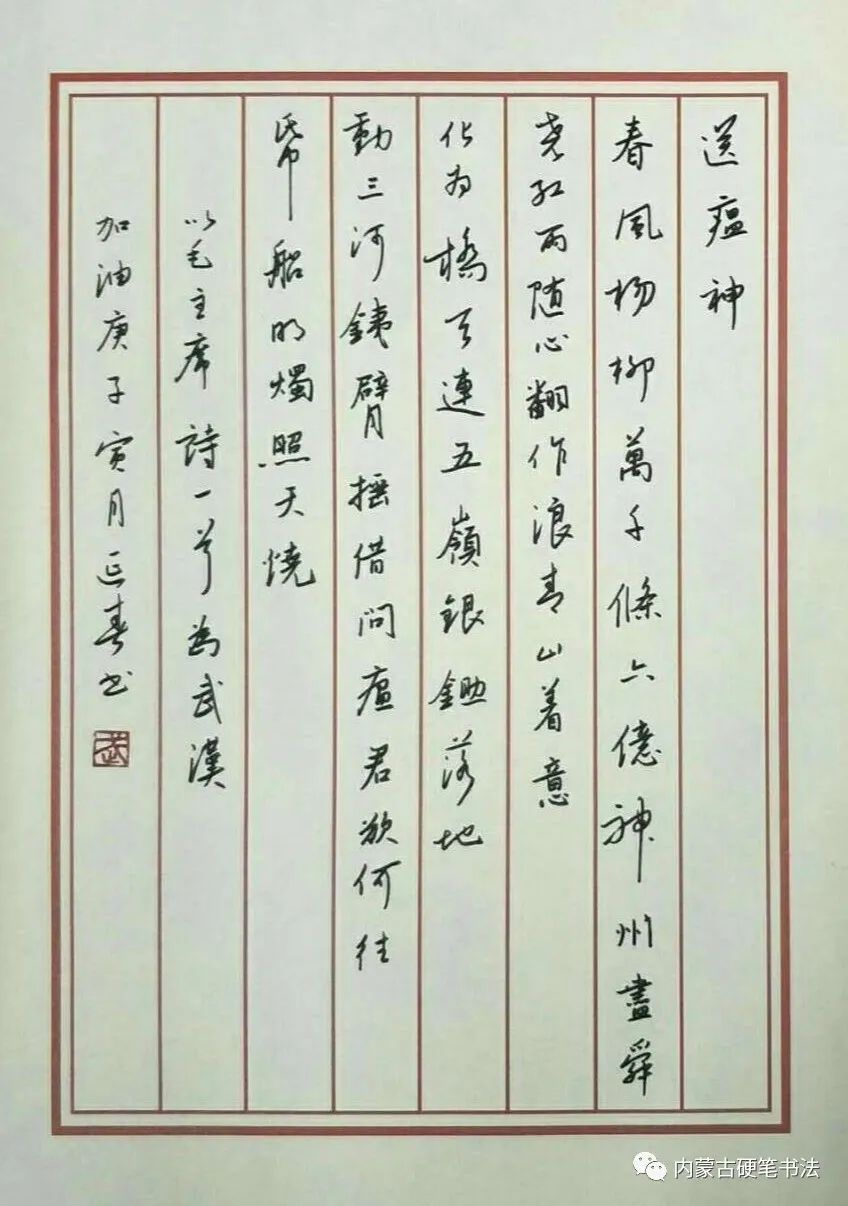 送瘟神
春風杨柳萬千條六億神州盡舜
尧红雨随心翻作浪青山着意
化为橋天連五嶺銀鋤落地
動三河銕臂摇借问瘟君欲何往
帋船明燭照天燒
以毛主席詩一首為武漢
加油庚子寅月延春书
武
内蒙古硬笔书法